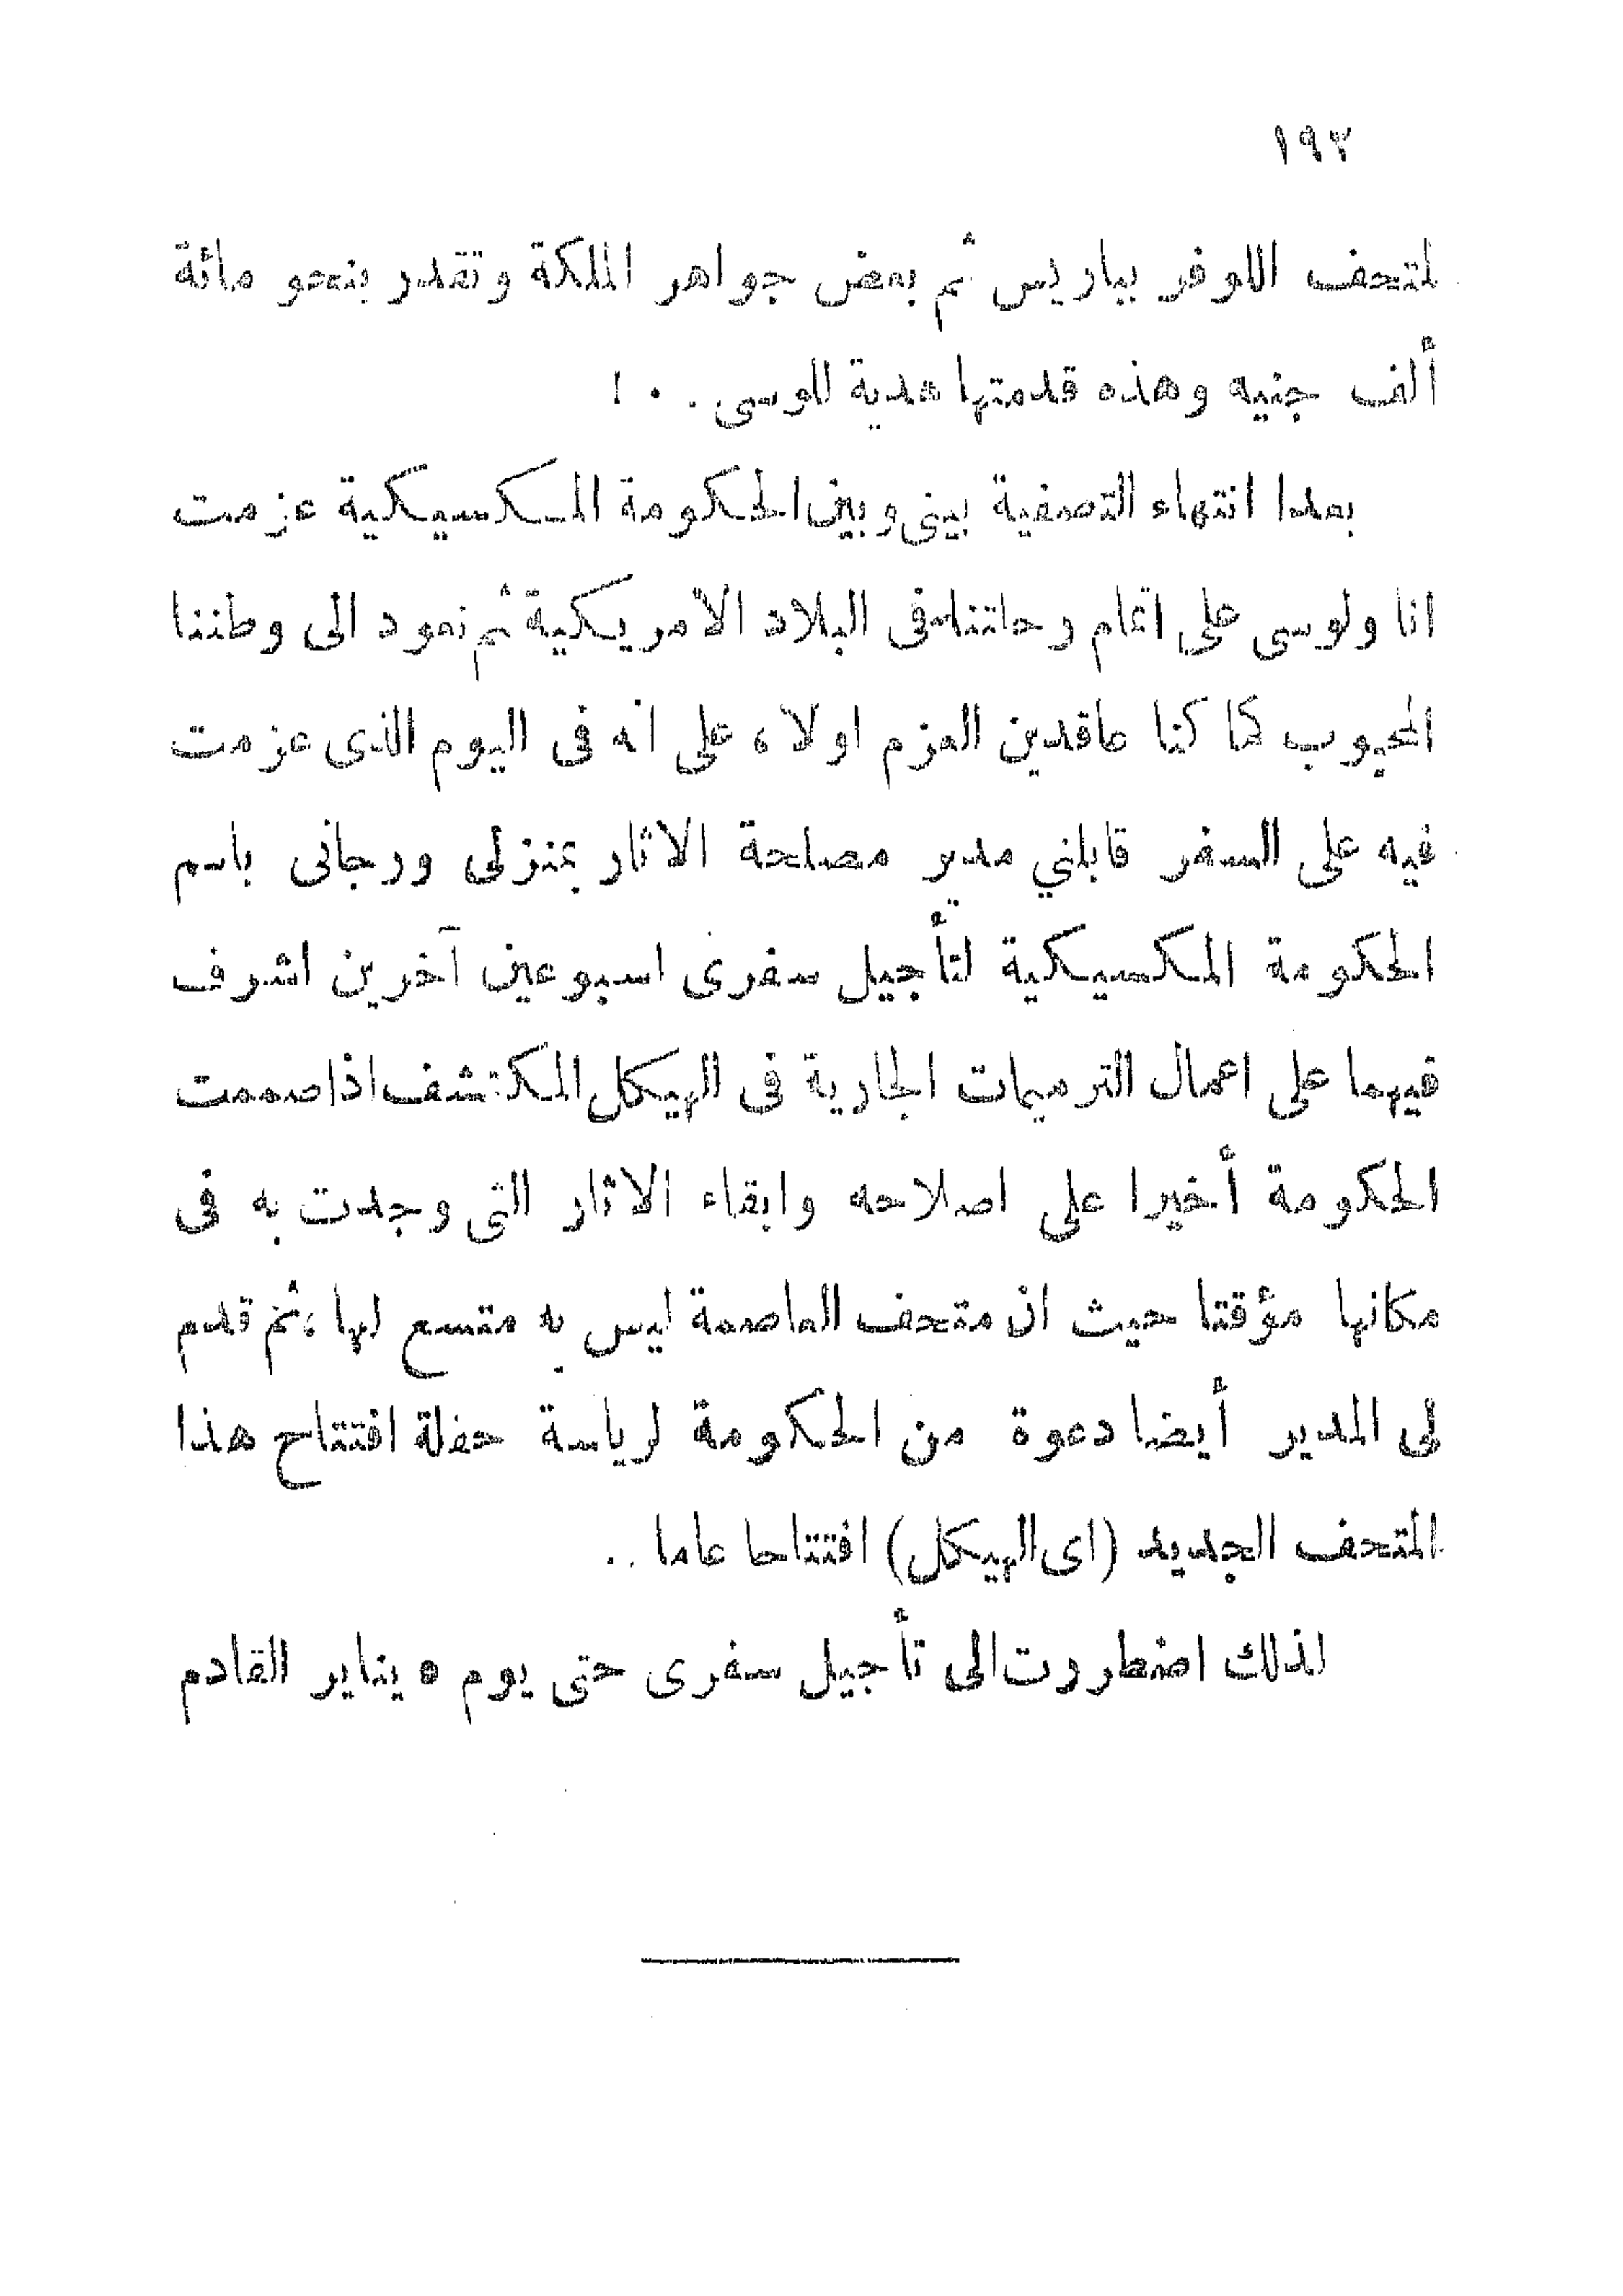 ١٩٢
لمتحف اللوفر بباريس ثم بعض جواهر الملكة وتقدر بنحو مائة
ألف جنيه وهذه قدمتها هدية للوسى . . !
بعدا انتهاء التصفية بينى وبين الحكومة المكسيكية عزمت
انا ولوسى على اتمام رحلتنا فى البلاد الامريكية ثم نعود الى وطننا
المحبوب كما كنا عاقدين العزم اولا ، على انه فى اليوم الذى عزمت
فيه على السفر قابلني مدير مصلحة الاثار بمنزلى ورجانى باسم
الحكومة المكسيكية لتأجيل سفرى اسبوعين آخرين اشرف
فيهما على اعمال الترميمات الجارية فى الهيكل المكتشف اذا صممت
الحكومة أخيرا على اصلاحه وابقاء الاثار التى وجدت به فى
مكانها مؤقتا حيث ان متحف العاصمة ليس به متسع لها ، ثم قدم
لى المدير أيضا دعوة من الحكومة لرياسة حفلة افتتاح هذا
المتحف الجديد (اى الهيكل) افتتاحا عاما ..
لذلك اضطررت الى تأجيل سفرى حتى يوم ٥ يناير القادم